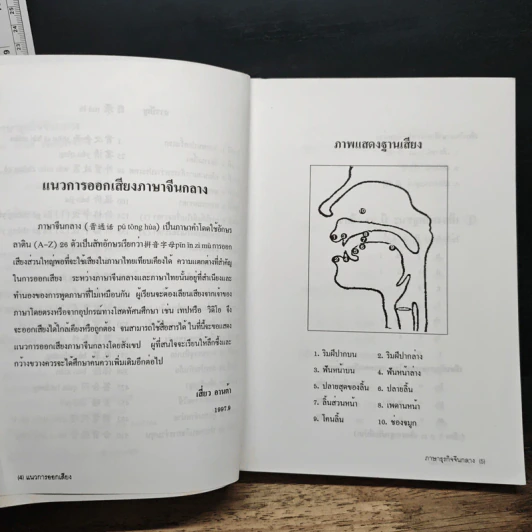 แนวการออกเสียงภาษาจีนกลาง
ภาษาจีนกลาง (普通话 pǔ tōng huà) เป็นภาษาคำโดดใช้อักษร
ลาติน (A-Z) 26 ตัวเป็นสัทอักษรเรียกว่า拼音字母pīn īn zì mǔ การออก
เสียงส่วนใหญ่พอที่จะใช้เสียงในภาษาไทยเทียบเคียงได้ ความแตกต่างที่สำคัญ
ในการออกเสียง ระหว่างภาษาจีนกลางและภาษาไทยนั้นอยู่ที่สำเนียงและ
ทำนองของการพูดภาษาที่ไม่เหมือนกัน ผู้เรียนจะต้องเลียนเสียงจากเจ้าของ
ภาษาโดยตรงหรือจากอุปกรณ์ทางโสตทัศนศึกษา เช่น เทปหรือ วีดีโอ จึง
จะออกเสียงได้ใกล้เคียงหรือถูกต้อง จนสามารถใช้สื่อสารได้ ในที่นี้จะขอแสดง
แนวการออกเสียงภาษาจีนกลางโดยสังเขป ผู้ที่สนใจจะเรียนให้ลึกซึ้งและ
กว้างขวางควรจะได้ศึกษาค้นคว้าเพิ่มเติมอีกต่อไป
เสี่ยว
1997.9
(4) แนวการออกเสียง
ภาพแสดงฐานเสียง
1. ริมฝีปากบน 2. ริมฝีปากล่าง
3. ฟันหน้าบน 4. ฟันหน้าล่าง
5. ปลายสุดของลิ้น 6. ปลายลิ้น
7. ลิ้นส่วนหน้า 8. เพดานหน้า
9. โคนลิ้น 10. ช่องจมูก
ภาษาธุรกิจจีนกลาง (5)